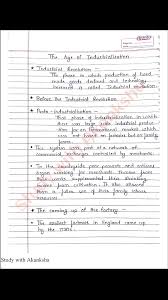 The Age of Industrialisation
Industrial Revolution :-
The phase in which production of hand
made goods declined and technology
became is called Industrial revolution.
Before the Industrial Revolution
Proto-industrialisation -
That phase of industrialisation in which
there was large scale industrial production
for an international market which
was not based on factories but on family
farms.
This system was part of a network of
commercial exchanges controlled by merchants.
In the countryside poor peasants and artisans
began working for merchants. Income from
these works supplemented their shrinking
income from cultivation. It also allowed
them a fuller use of their family labour
resources.
The coming up of the factory -
The earliest factories in England came up
by the 1730s.
Study with Akanksha